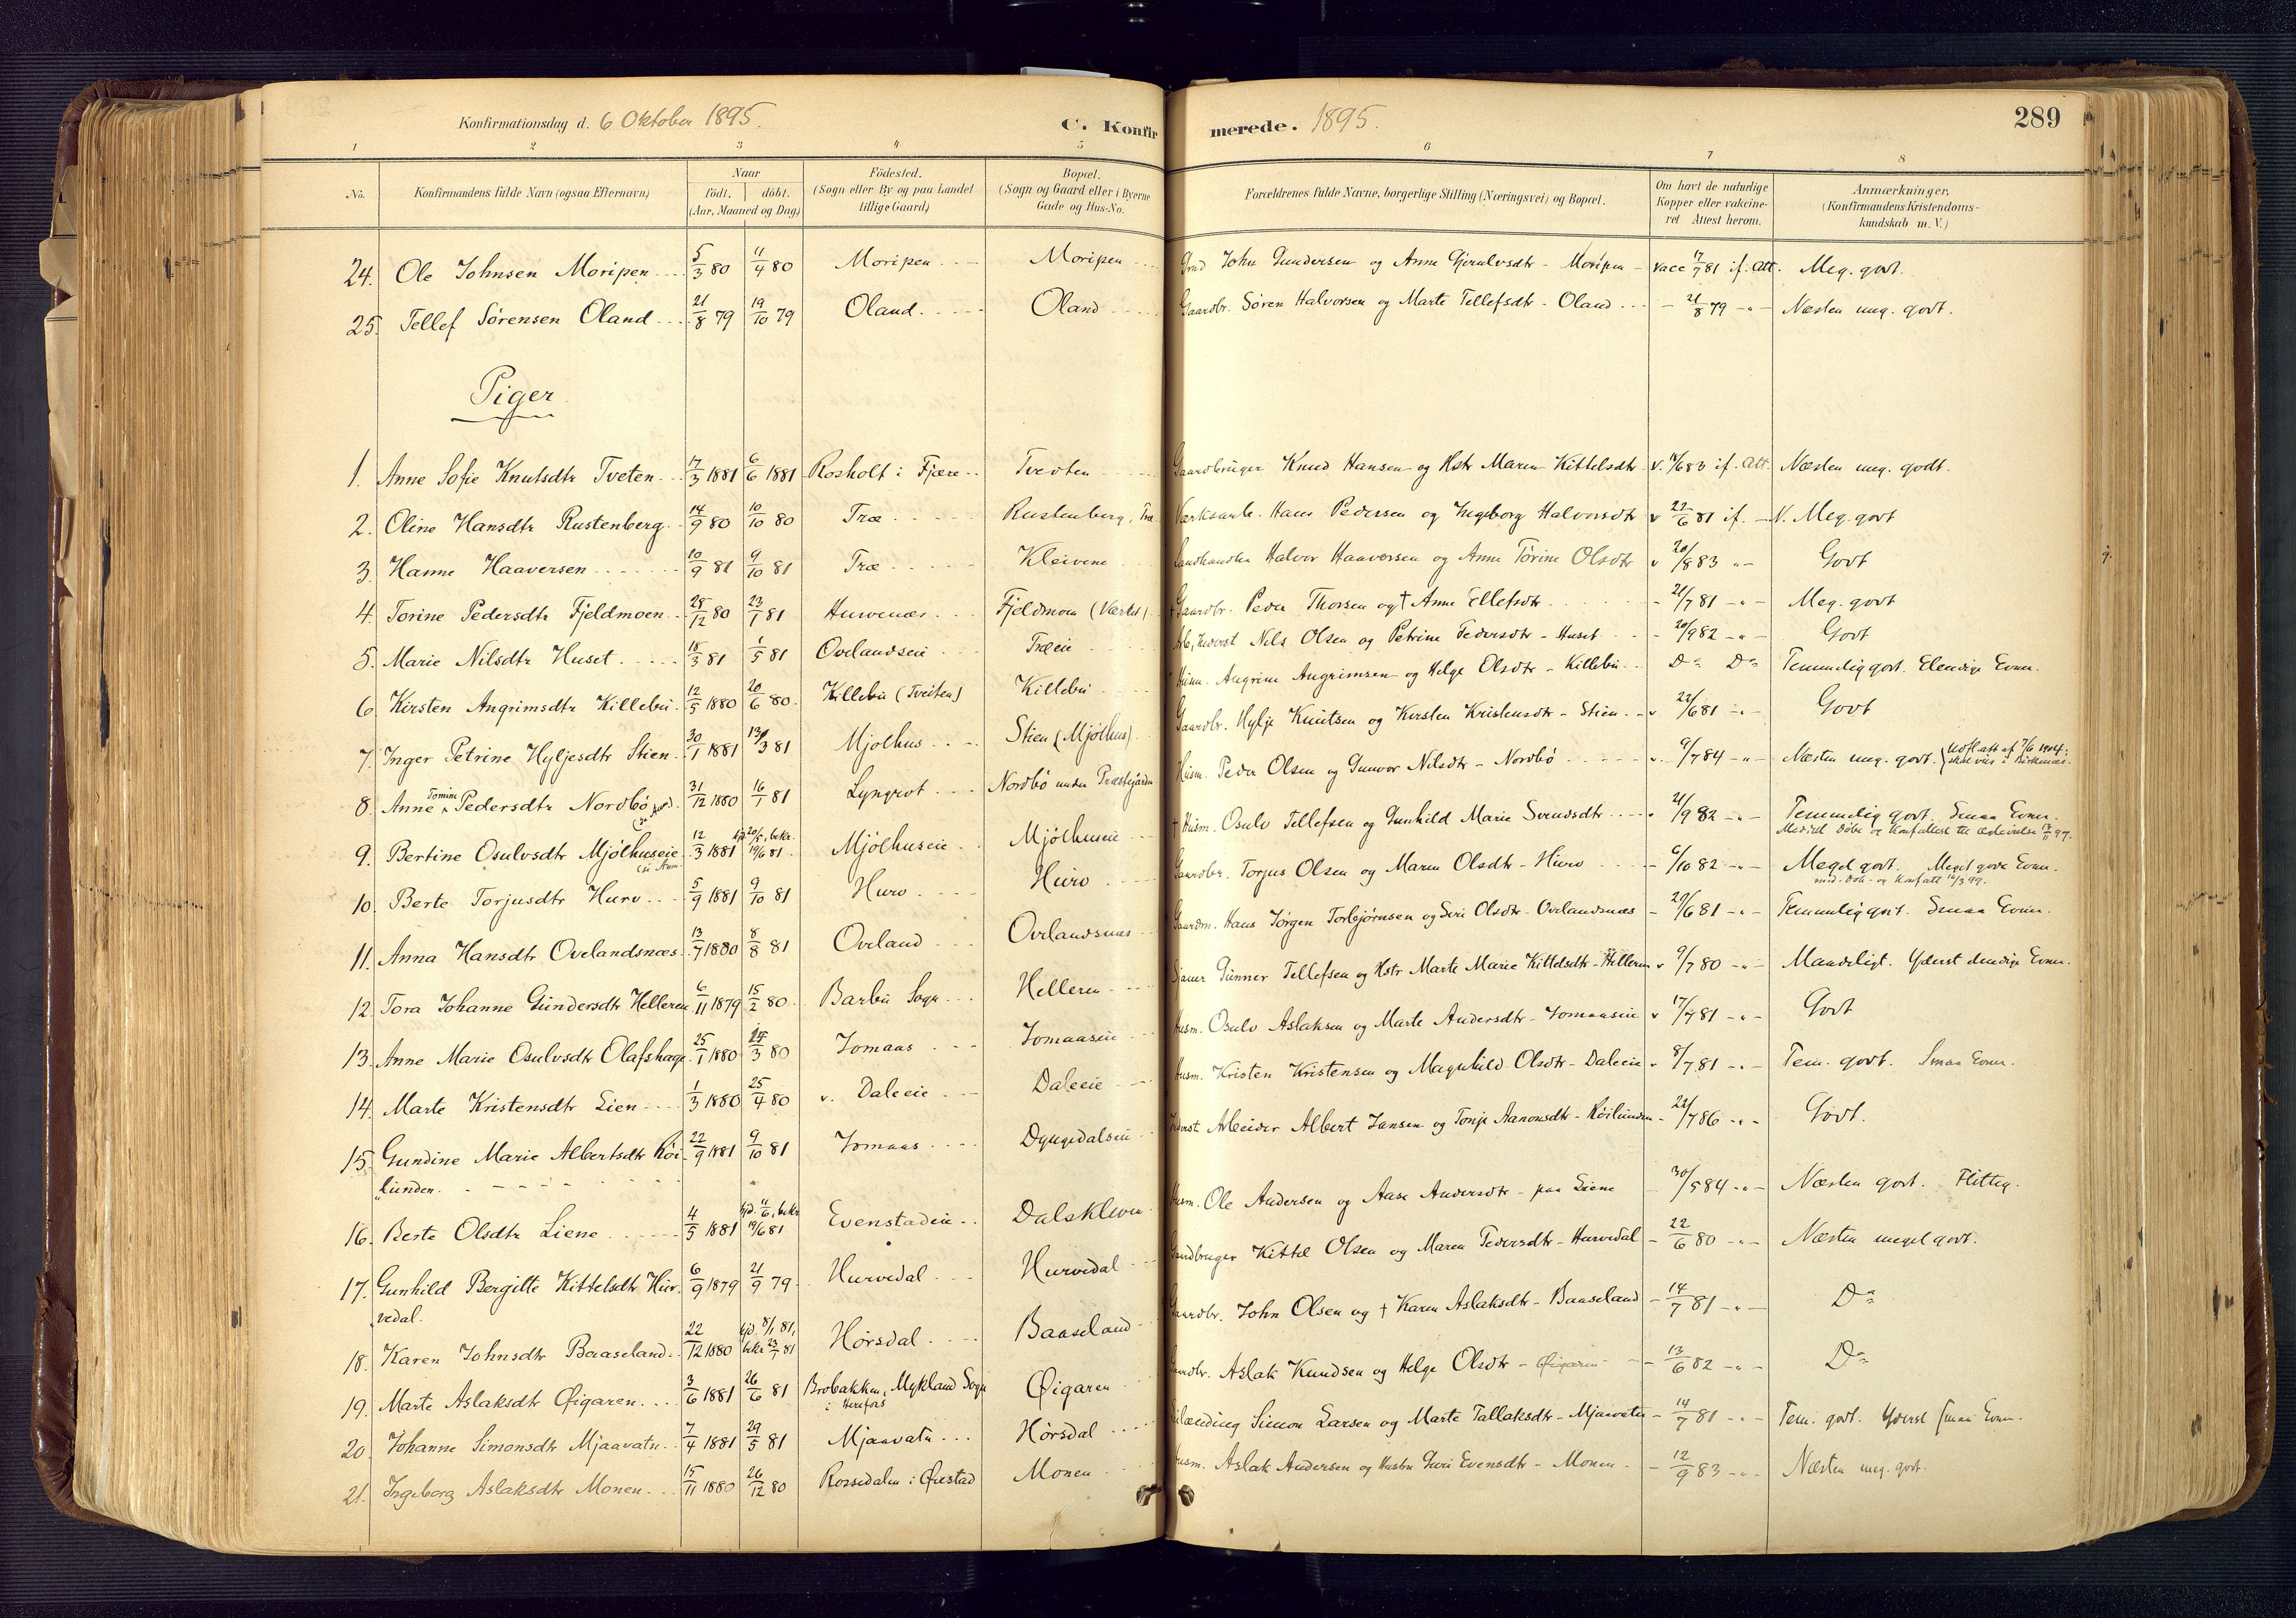 Konfirmationsdag d. 6 Oktober 1895. C. Konfir merede. 1895. 289
1 2 3 4 5 6 7 8
No. Konfirmandens fulde Navn (ogsaa Efternavn) Naar født. døbt. (Aar, Maaned og Dag) Fødested. (Sogn eller By og paa Landet tillige Gaard) Bopæl. (Sogn og Gaard eller i Byerne Gade og Hus-No. Forældrenes fulde Navne, borgerlige Stilling (Næringsvei) og Bopæl. Om havt de naturlige Kopper eller vakcineret Attest herom. Anmærkninger, (Konfirmandens Kristendomskundskab m. V.)
24. Ole Johnsen Moripen 5/3 80 11/4 80 Moripen Moripen John Gundersen og Anne Gjerulvsdtr - Moripen - vacc 17/7 81 if. Att. Meg. godt.
25. Tellef Sörensen Oland 21/8 79 19/10 79 Oland Oland Gaardbr. Sören Halvorsen og Marte Tellefsdtr - Oland - 21/8 79 -"- Næsten meg. godt.
Piger
1. Anne Sofie Knutsdtr Tveten 17/3 1881 6/6 1881 Rosholt i Fjære Tvedten Gaardbruger Knud Hansen og Hstr Maren Kittelsdtr v. 18/6 83 if. Att. Næsten meg. godt.
2. Oline Hansdtr Rustenberg 14/9 80 10/10 80 Træ Rustenberg, Træ Værksarb. Hans Pedersen og Ingeborg Halvorsdtr v 22/6 81 if. - N. Meg. godt
3. Hanne Haaversen 10/9 81 9/10 81 Træ Kleivene Landhandler Halvor Haaversen og Anne Törine Olsdtr v 20/8 83 "- Godt
4. Torine Pedersdtr Fjeldmoen 28/12 80 23/1 81 Hurvenæs Fjeldmoen (Værket) Gaardbr. Peder Thorsen og † Anne Tellefsdtr - 21/7 81 -"- Meg. godt
5. Marie Nilsdtr Huset 18/3 81 1/5 81 Ovelandseie Træeie Arb, Inderst Nils Olsen og Petrine Pedersdtr - Huset - 20/9 82 -"- Godt
6. Kirsten Angrimsdtr Killebu 12/5 1880 20/6 80 Killebu (Tveiten) Killebu Husm. Angrim Angrimsen og Helge Olsdtr - Killebu Do Do Temmelig godt. Elendige Evner.
7. Inger Petrine Hyljesdtr Stien 30/1 1881 13/3 81 Mjölhus Stien (Mjölhus) Gaardbr. Hylje Knutsen og Kirsten Kristensdtr - Stien - v 22/6 81 -"- Godt
8. Anne Tomine Pedersdtr Nordbö 31/12 1880 16/1 81 Lyngrot Nordbö under Præstegården Husm. Peder Olsen og Gunvor Nilsdtr - Nordbö v. 9/7 84 -"- Næsten meg. godt. { Udfl.att af 7/6 1904: skal vies i Birkenæs.
9. Bertine Osulvsdtr Mjölhuseie 12/3 1881 hjd 20/5, bekr. 19/6 81 Mjölhuseie Mjölhuseie † Husm. Osulv Tellefsen og Gunhild Marie Svendsdtr " 21/9 82 -"- Temmelig godt. Smaa Evner.
10. Berte Torjusdtr Hurv 5/9 1881 9/10 81 Hurv Hurv Gaardbr. Torjus Olsen og Maren Olsdtr - Hurv - 6/10 82 -"- Meget godt. Meget gode Evner.
med. Dåb- og Konfatt 16/3 99.
11. Anna Hansdtr Ovelandsnæs 13/7 1880 8/8 81 Oveland Ovelandsnæs Gaardm. Hans Jörgen Torbjörnsen og Siri Olsdtr - Ovelandsnæs - 29/6 81 -"- Temmelig godt. Smaa Evner.
12. Tora Johanne Gundersdtr Helleren 6/11 1879 15/2 80 Barbu Sogn Helleren Gunner Tellefsen og Hstr Marte Marie Kittelsdtr - Helleren v 9/7 80 -"- Maadeligt. Yderst elendige Evner.
13. Anne Marie Osulvsdtr Olafshage 25/1 1880 3 80 Jomaas Jomaaseie Husm. Osulv Aslaksen og Marte Andersdtr - Jomaaseie v 17/7 81 -"- Godt
14. Marte Kristensdtr Lien 1/3 1880 25/4 80 v. Daleeie Daleeie Husm. Kristen Kristensen og Magnhild Olsdtr - Daleeie v 8/7 81 -"- Tem. godt. Smaa Evner.
15. Gundine Marie Albertsdtr Röi- 22/9 1881 9/10 81 Jomaas Dyngedalseie Inderst Arbeider Albert Jansen og Tonje Aanonsdtr - Röilunden - 22/7 86 -"- Godt.
"lunden.
16. Berte Olsdtr Liene 4/5 1881 hjd. 11/6, bekr 19/6 81 Evenstadeie Dalskleven Husm. Ole Andersen og Aase Andersdtr - paa Liene 30/5 84 -"- Næsten godt. Flittig.
17. Gunhild Bergitte Kittelsdtr Hur- 6/9 1879 21/9 79 Hurvedal Hurvedal Gaardbruger Kittel Olsen og Maren Pedersdtr - Hurvedal - 22/6 80 -"- Næsten meget godt.
"vedal.
18. Karen Johnsdtr Baaseland 22/12 1880 hjd. 8/1 81, bekr 23/1 81 Hörsdal Baaseland Gaardbr. John Olsen og † Karen Aslaksdtr - Baaseland - 14/7 81 -"- Do
19. Marte Aslaksdtr Øigaren 3/6 1881 26/6 81 Brobakken, Mykland Sogn i Herefoss Øigaren Gaardbr. Aslak Knudsen og Helge Olsdtr - Øigaren - 13/6 82 -"- Do
20. Johanne Simonsdtr Mjaavatn 7/4 1881 29/5 81 Mjaavatn Hörsdal Simon Larsen og Marte Tallaksdtr - Mjaavatn - 14/7 81 -"- Tem. godt. Yderst smaa Evner.
21. Ingeborg Aslaksdtr Monen 15/11 1880 26/12 80 Rossedalen i Øiestad Monen Husm. Aslak Andersen og Hustru Guri Evensdtr - Monen - 12/9 83 -"- Næsten meg. godt.